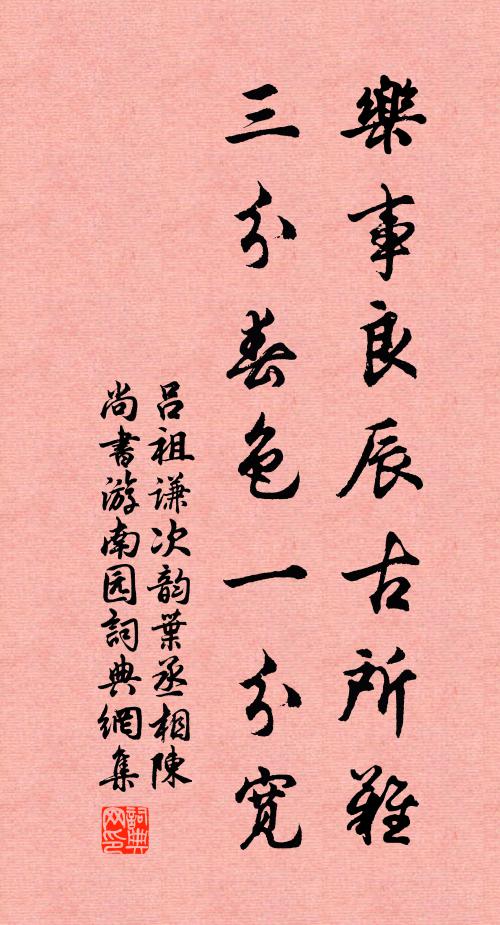 樂事良辰古所難
三分春色一分寬
吕祖谦次韵葉丞相陳
尚書游南园詞典網集
詞典网印